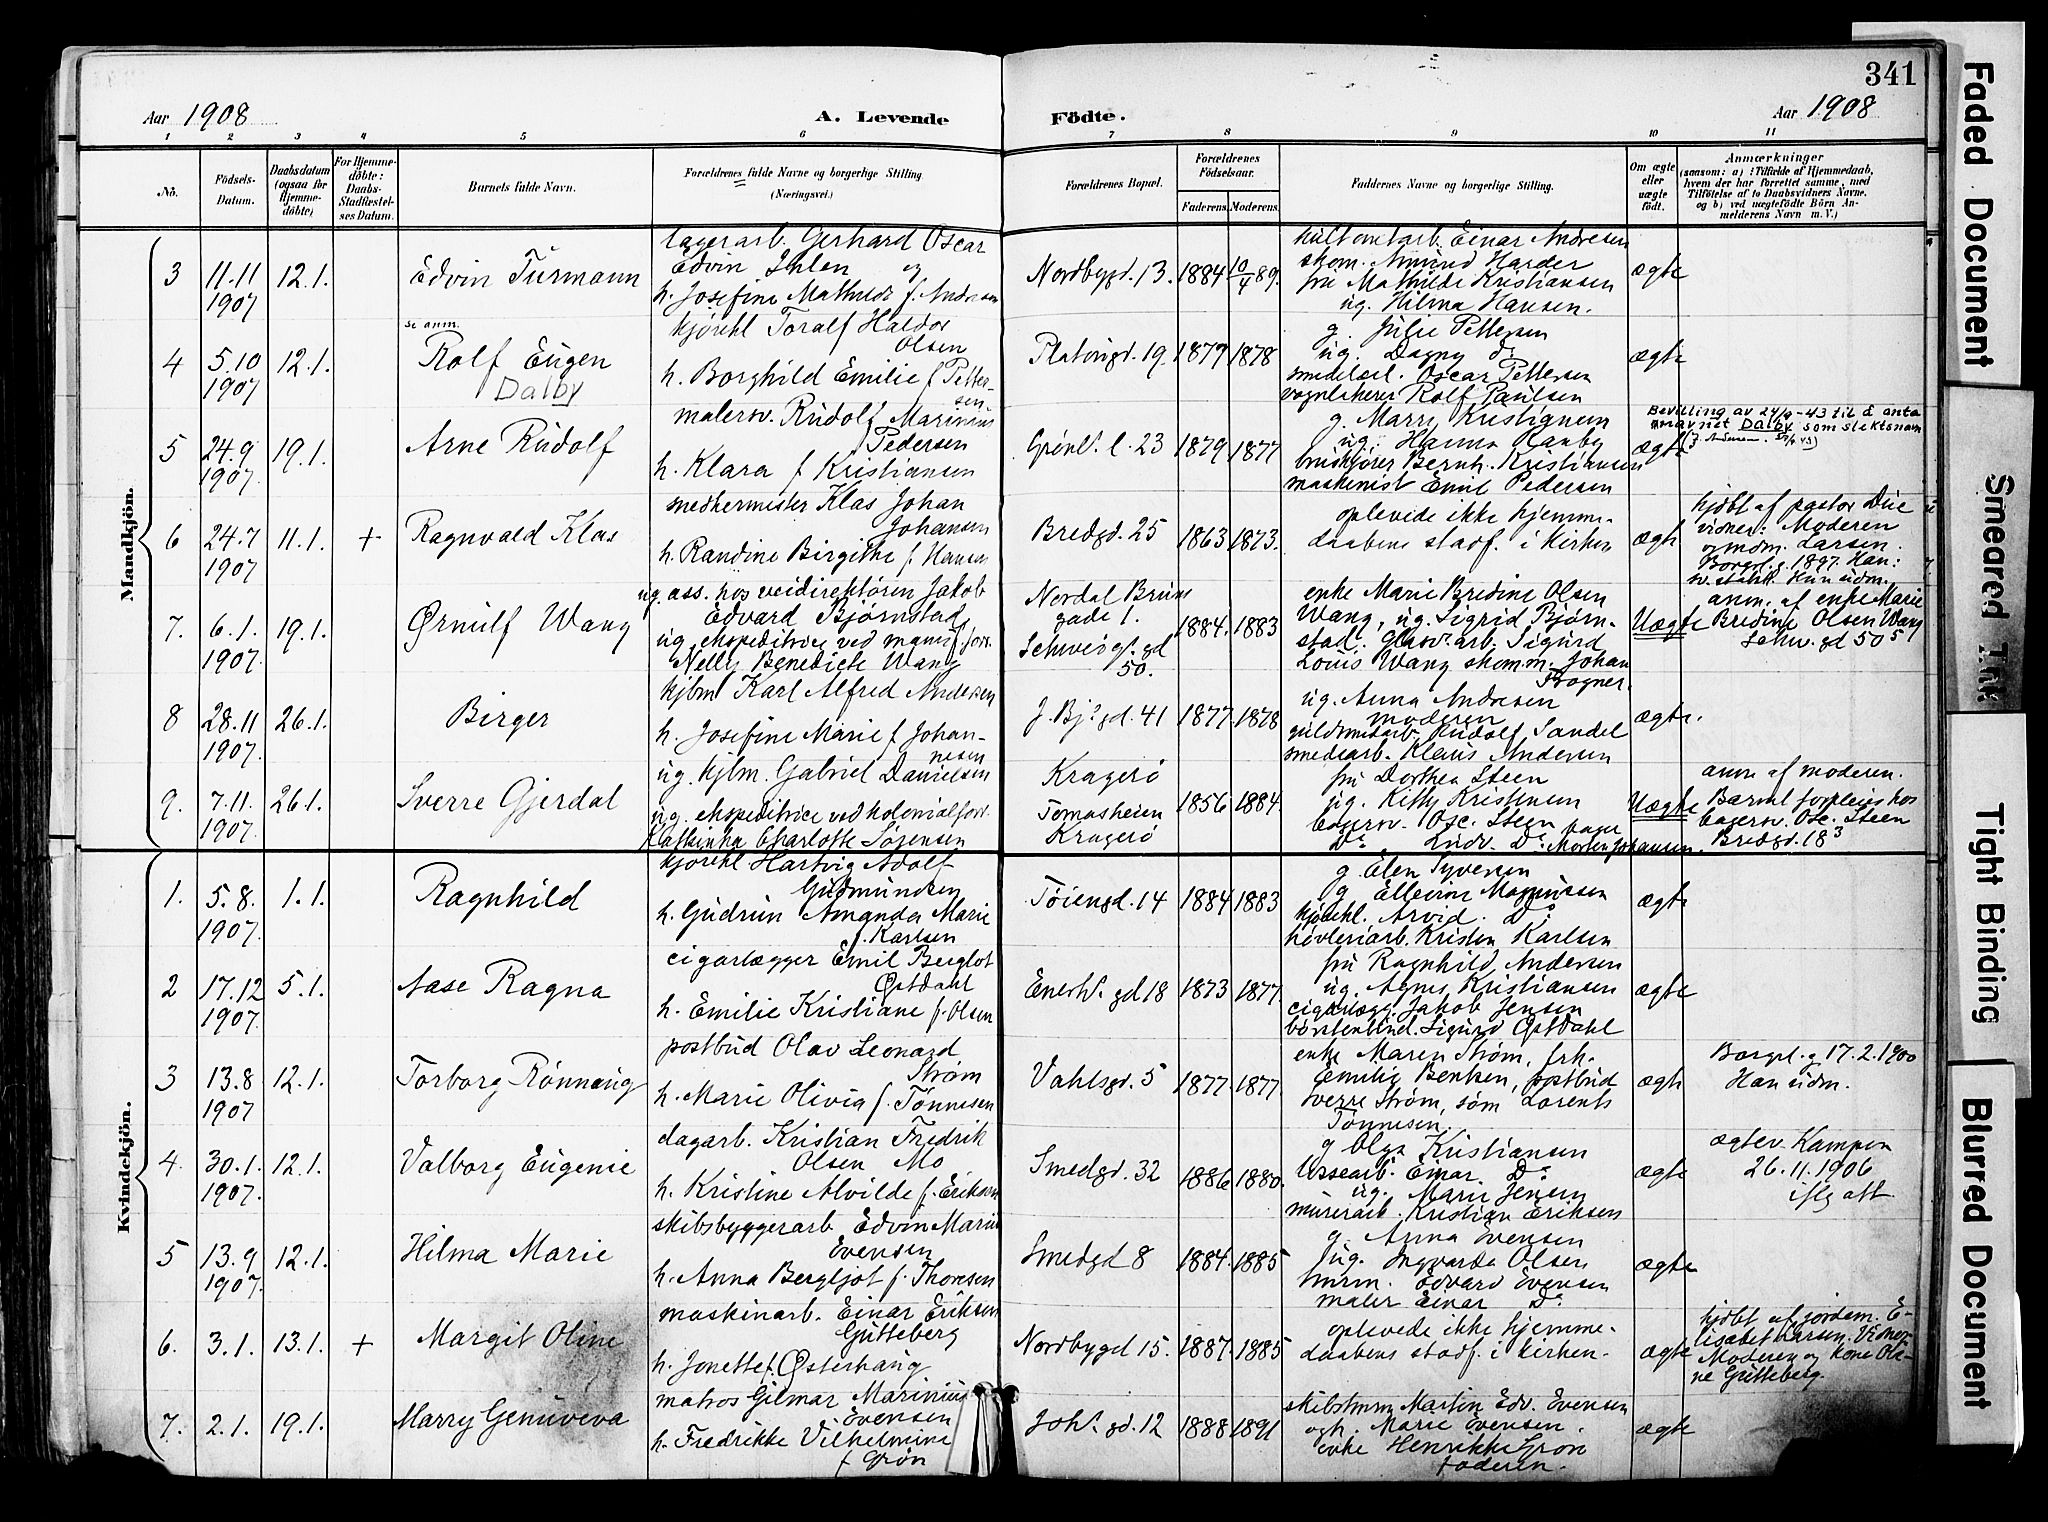 341
Aar 1908
A. Levende
Födte.
Aar 1908
1 2 3 4 5 6 7 8 9 10 11
No.
Födsels-
Datum.
Daabsdatum
(ogsaa for
Hjemme-
döbte)
For Hjemme-
döbte:
Daabs-
Stadfæstel-
ses Datum.
Barnets fulde Navn.
Forældrenes fulde Navne og borgerlige Stilling
(Næringsvei.)
Forældrenes Bopæl.
Forældrenes
Födselsaar.
Faderens.
Moderens.
Faddernes Navne og borgerlige Stilling.
Om ægte
eller
uægte
födt.
Anmærkninger
(saasom: a) i Tilfælde af Hjemmedaab,
hvem der har forrettet samme, med
Tilföielse af to Daabsvidners Navne.
og b) ved uægtefödte Börn An-
melderens Navn m. V.)
Mandkjön.
3
11.11
1907
12.1.
Edvin Turmann
lagerarb. Gerhard Oscar
Edvin Ihlen og
h. Josefine Mathilde f. Andresen
Nordbygd. 13.
1884
10/4 89.
Einar Andresen
skom. Amund Harder
fru Mathilde Kristiansen
ug. Hilma Hansen.
ægte
4
5.10
1907
12.1.
se anm.
Rolf Eugen
Dalby
kjørekl Toralf Haldor
Olsen
h. Borghild Emilie f Petter-
sen
Platousgd. 19.
1877
1878
g. Julie Pettersen
ug. Dagny do
smedelærl. Oscar Pettersen
Rolf Paulsen
ægte
Bevilling av 24/9-43 til å anta
navnet Dalby som slektsnavn
5
24.9
1907
19.1.
Arne Rudolf
malersv. Rudolf Marinius
Pedersen
h. Klara f Kristiansen
Grønl. l. 23
1879
1877
g. Marry Kristiansen
ug. Hanna Ranby
Bernh. Kristiansen
maskinist Emil Pedersen
ægte
6
24.7
1907
11.1.
+
Ragnvald Klas
Klas Johan
Johansen
h. Randine Birgitte f. Hansen
Bredgd. 25
1863
1873.
oplevede ikke hjemme-
daabens stadf. i Kirken
ægte
hjdbt af pastor Due
vidner: Moderen
og mdm. Larsen.
Borgl. g. 1897. Han:
sv. statsk. Hun udm.
7.
6.1.
1907
19.1.
Ørnulf Wang
ug. ass. hos veidirektøren Jakob
Edvard Bjørnstad
ug. ekspeditrice ved manuf. forr.
Nelly Benedicte Wang
Nordal Bruns
gade 1.
Schweigs. gd
50.
1884.
1883
enke Marie Bredine Olsen
Wang, ug. Sigrid Bjørn-
stad. Glasv. arb. Sigurd
Louis Wang skomm. Johan
Frogner.
Uægte
anm. af enke Marie
Bredine Olsen Wang
Schw. gd 50 5
8
28.11
1907
26.1.
Birger
kjlm Karl Alfred Andersen
h. Josefine Marie f Johan-
nesen
J. Bj. gd. 41
1877.
1878
ug. Anna Andresen
moderen
guldsmedarb. Rudolf Sandel
smedearb. Klaus Andersen
ægte.
9.
7.11.
1907.
26.1.
Sverre Gjerdal
ug. kjlm. Gabriel Danielsen
ug. ekspeditrice ved kolonialforr.
Kathinka Charlotte Sørensen
Kragerø
Tomasheien
Kragerø
1856
1884.
fru Dorthea Steen
ug. Kitty Kristensen
bagersv. Osc. Steen
Do Ludv. Do bager Morten Johansen.
Uægte
anm af moderen.
Barnet forpleies hos
bagersv. Osc. Steen
Bredgd. 18 3
Kvindekjön.
1.
5.8.
1907.
1.1.
Ragnhild
kjørekl Hartvig Adolf
Gudmundsen
h. Gudrun Amanda Marie
f. Karlsen
Tøiengd. 14
1884
1883
g. Elen Syversen
g Ellevine Magnussen
kjørekl. Arvid. Do
høvleriarb. Kristen Karlsen
ægte
2
17.12
1907.
5.1.
Aase Ragna
cigarlægger Emil Bergtot
Østdahl
h. Emilie Kristiane f. Olsen
Enerh. gd 18
1873
1877.
fru Ragnhild Andersen
ug. Agnes Kristiansen
cigarlægg. Jakob Jensen
børstenbind. Sigurd Østdahl
ægte
3
13.8
1907
12.1.
Torborg Rønnaug
postbud Olav Leonard
Strøm
h. Marie Olivia f. Tønnesen
Vahlsgd. 5
1877
1877.
enke Maren Strøm, frk.
Emilie Bentsen, postbud
Sverre Strøm, søm Lorents
Tønnesen.
ægte
Borgl. g 17.2.1900
Han udm.
4.
30.1.
1907.
12.1.
Valborg Eugenie
dagarb. Kristian Fredrik
Olsen Mo
h. Kristine Alvilde f. Eriksen
Smedgd. 32
1886
1880.
g Olga Kristiansen
Einar. Do
ug. Marie Jensen
murerarb. Kristian Eriksen
ægte
ægtev. Kampen
26.11.1906
iflg att
5
13.9
1907.
12.1.
Hilma Marie
skibsbyggerarb Edvin Marius
Evensen
h. Anna Bergljot f. Thoresen
Smedgd 8
1884.
1885
g. Anna Evensen
ug. Ingvarda Olsen
tmrm. Edvard Evensen
maler Einar Do
ægte
6.
3.1.
13.1.
+
Margit Oline
maskinarb. Einar Eriksen
Gutteberg
h. Jonette f. Østerhaug
Nordbygd 15.
1887.
1885
oplevede ikke hjemme-
daabens stadf. i kirken.
ægte
hjdbt af jordem. E-
lisabet Larsen. Vidner
Moderen og kone Ola-
ne Gutteberg.
7.
2.1.
19.1.
Marry Genoveva
matros Gilmar Marinius
Evensen
h. Fredrikke Vilhelmine
f Grøn
Joh. gd. 12
1888
1891
skibstmrm Martin Edv. Evensen
og h. Marie Evensen.
enke Henrikke Grøn
Faderen.
ægte
Faded Document
Smeared Ink
Tight Binding
Blurred Document